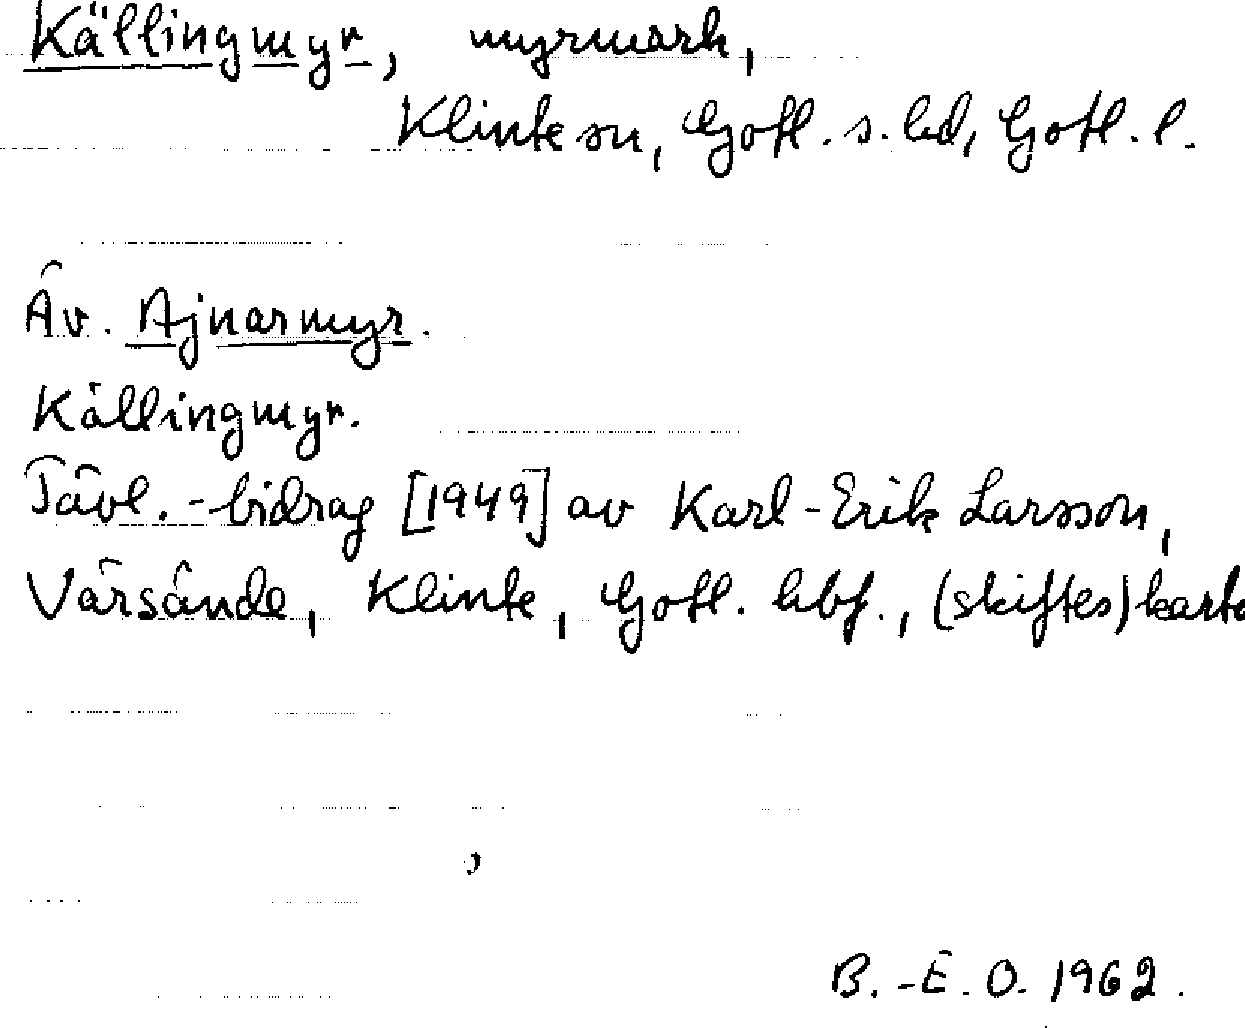 Källingmyr, myrmark,
Klinte sn, Gotl. s. hd, Gotl. l.
Äv. Ajnarmyr.
Källingmyr.
Tävl.-bidrag [1949] av Karl-Erik Larsson,
Värsände, Klinte, Gotl. hbf., (skiftes)karta
B.-E. O. 1962.